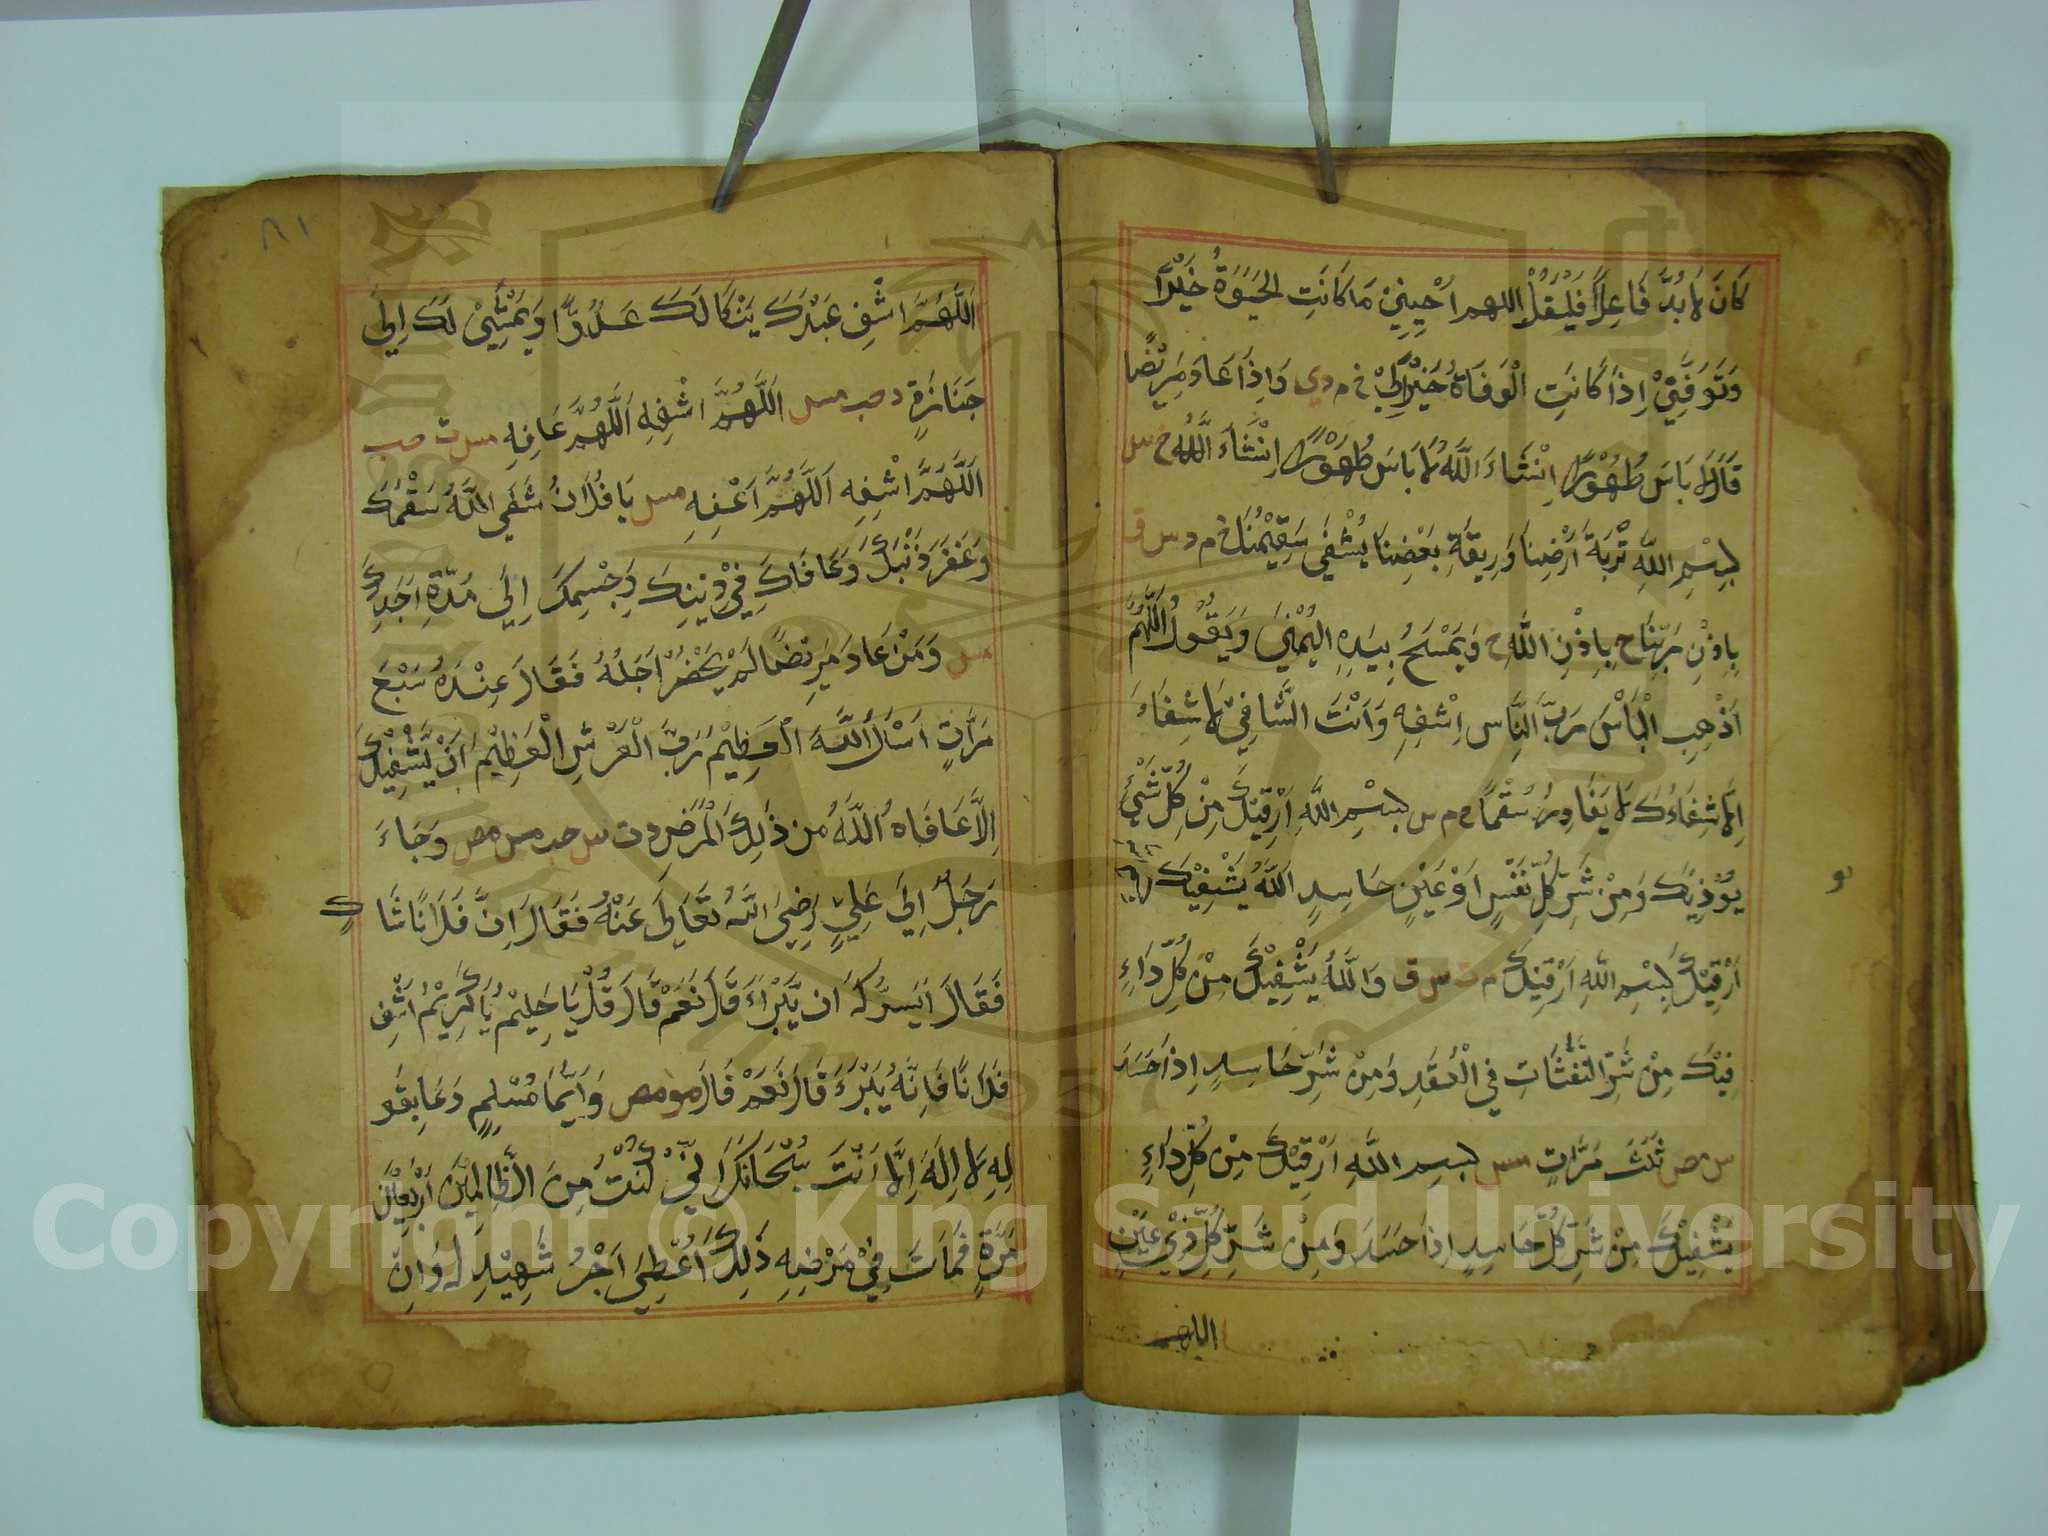 كَانَ لَا بُدَّ فَاعِلًا فَلْيَقُلْ اللهم اَحْيِنِيْ مَا كَانَتِ الْحَيٰوةُ خَيْرًا
وَتَوَفَّنِيْ اِذَا كَانَتِ الْوَفَاةُ خَيْرًا لِيْ خ م د ي وَاِذَا عَادَ مَرِيْضًا
قَالَ لَا بَاسَ طُهُوْرًا اِنْشَاءَ اللّٰهُ لَا بَاسَ طُهُوْرًا اِنْشَاءَ اللّٰهُ خ س
بِسْمِ اللّٰهِ تُرْبَةُ اَرْضِنَا وَرِيْقَةِ بَعْضِنَا يُشْفٰى سَقِيْمُنَا خ م د س ق
بِاِذْنِ رَبِّنَا خ بِاِذْنِ اللّٰهِ خ وَيَمْسَحُ بِيَدِهِ الْيُمْنٰى وَيَقُوْلُ اَللّٰهُمَّ
اَذْهِبِ الْبَأْسَ رَبَّ النَّاسِ اِشْفِهِ وَاَنْتَ الشَّافِيْ لَا شِفَاءَ
اِلَّا شِفَاءُكَ لَا يُغَادِرُ سُقْمًا خ م س بِسْمِ اللّٰهِ اَرْقِيْكَ مِنْ كُلِّ شَيْءٍ
يُوْذِيْكَ وَمِنْ شَرِّ كُلِّ نَفْسٍ اَوْ عَيْنٍ حَاسِدٍ اَللّٰهُ يَشْفِيْكَ
اَرْقِيْكَ بِسْمِ اللّٰهِ اَرْقِيْكَ م ت س ق وَاللّٰهُ يَشْفِيْكَ مِنْ كُلِّ دَاءٍ
فِيْكَ مِنْ شَرِّ النَّفّٰثٰتِ فِي الْعُقَدِ وَمِنْ شَرِّ حَاسِدٍ اِذَا حَسَدَ
س مص ثَلٰثَ مَرَّاتٍ مس بسم اللّٰهِ اَرْقِيْكَ مِنْ كُلِّ دَاءٍ
يَشْفِيْكَ مِنْ شَرِّ كُلِّ حَاسِدٍ اِذَا حَسَدَ وَمِنْ شَرِّ كُلِّ ذِيْ عَيْنٍ
اللهم
٨١
اَللّٰهُمَّ اشْفِ عَبْدَكَ يَنْكَا لَكَ عَدُوًّا وَيَمْشِيْ لَكَ اِلٰى
جَنَازَةٍ د حب مس اَللّٰهُمَّ اشْفِهِ اَللّٰهُمَّ عَافِهِ مس ت حب
اَللّٰهُمَّ اشْفِهِ اَللّٰهُمَّ اَعْفِهِ مس يَا فُلَانُ شَفَى اللّٰهُ سَقْمَكَ
وَغَفَرَ ذَنْبَكَ وَعَافَاكَ فِيْ دِيْنِكَ وَجِسْمِكَ اِلٰى مُدَّةِ اَجَلِكَ
مس وَمَنْ عَادَ مَرِيْضًا لَمْ يَحْضُرْ اَجَلُهُ فَقَالَ عِنْدَهُ سَبْعَ
مَرَّاتٍ اَسْأَلُ اللّٰهَ الْعَظِيْمَ رَبَّ الْعَرْشِ الْعَظِيْمِ اَنْ يَّشْفِيْكَ
اِلَّا عَافَاهُ اللّٰهُ من ذٰلِكَ الْمَرَضِ د ت س حب مس مص وَجَاءَ
رَجُلٌ اِلٰى عَلِيٍّ رَضِيَ اللّٰهُ تَعَالٰى عَنْهُ فَقَالَ اِنَّ فُلَانًا شَا
كٍ
فَقَالَ اَيَسُرُّكَ اَن يَّبْرَاَ قَالَ نَعَمْ قَالَ قُلْ يَا حَلِيْمُ يَا كَرِيْمُ اشْفِ
فُلَانًا فَاِنَّهُ يَبْرَءُ قَالَ نَعَمْ قَالَ مو مص وَاَيُّمَا مُسْلِمٍ دَعَا بِقَو
لِهِ لَا اِلٰهَ اِلَّا اَنْتَ سُبْحَانَكَ اِنِّيْ كُنْتُ مِنَ الظَّالِمِيْنَ اَرْبَعِيْنَ
مَرَّةٍ فَمَاتَ فِيْ مَرَضِهِ ذٰلِكَ اُعْطِيَ اَجْرُ شَهِيْدٍ لَه وَاِنْ
Copyright © King Saud University